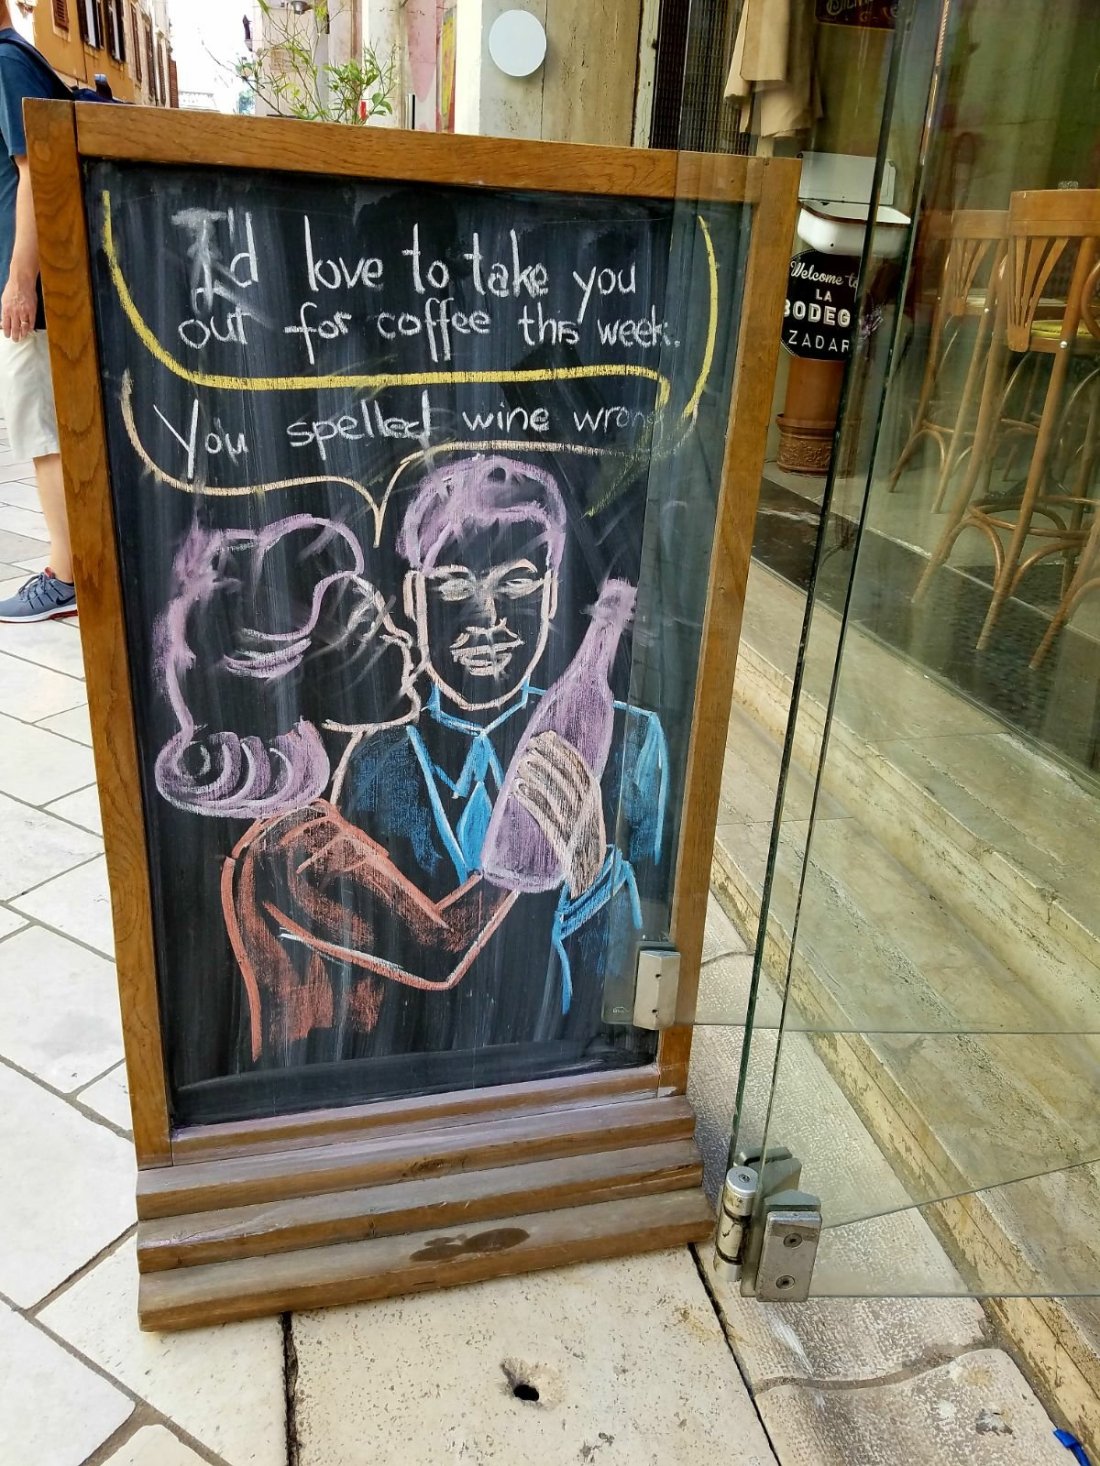 I'd love to take you
out for coffee this week.
You spelled wine wrong
Welcome to
LA
BODEG
ZADAR